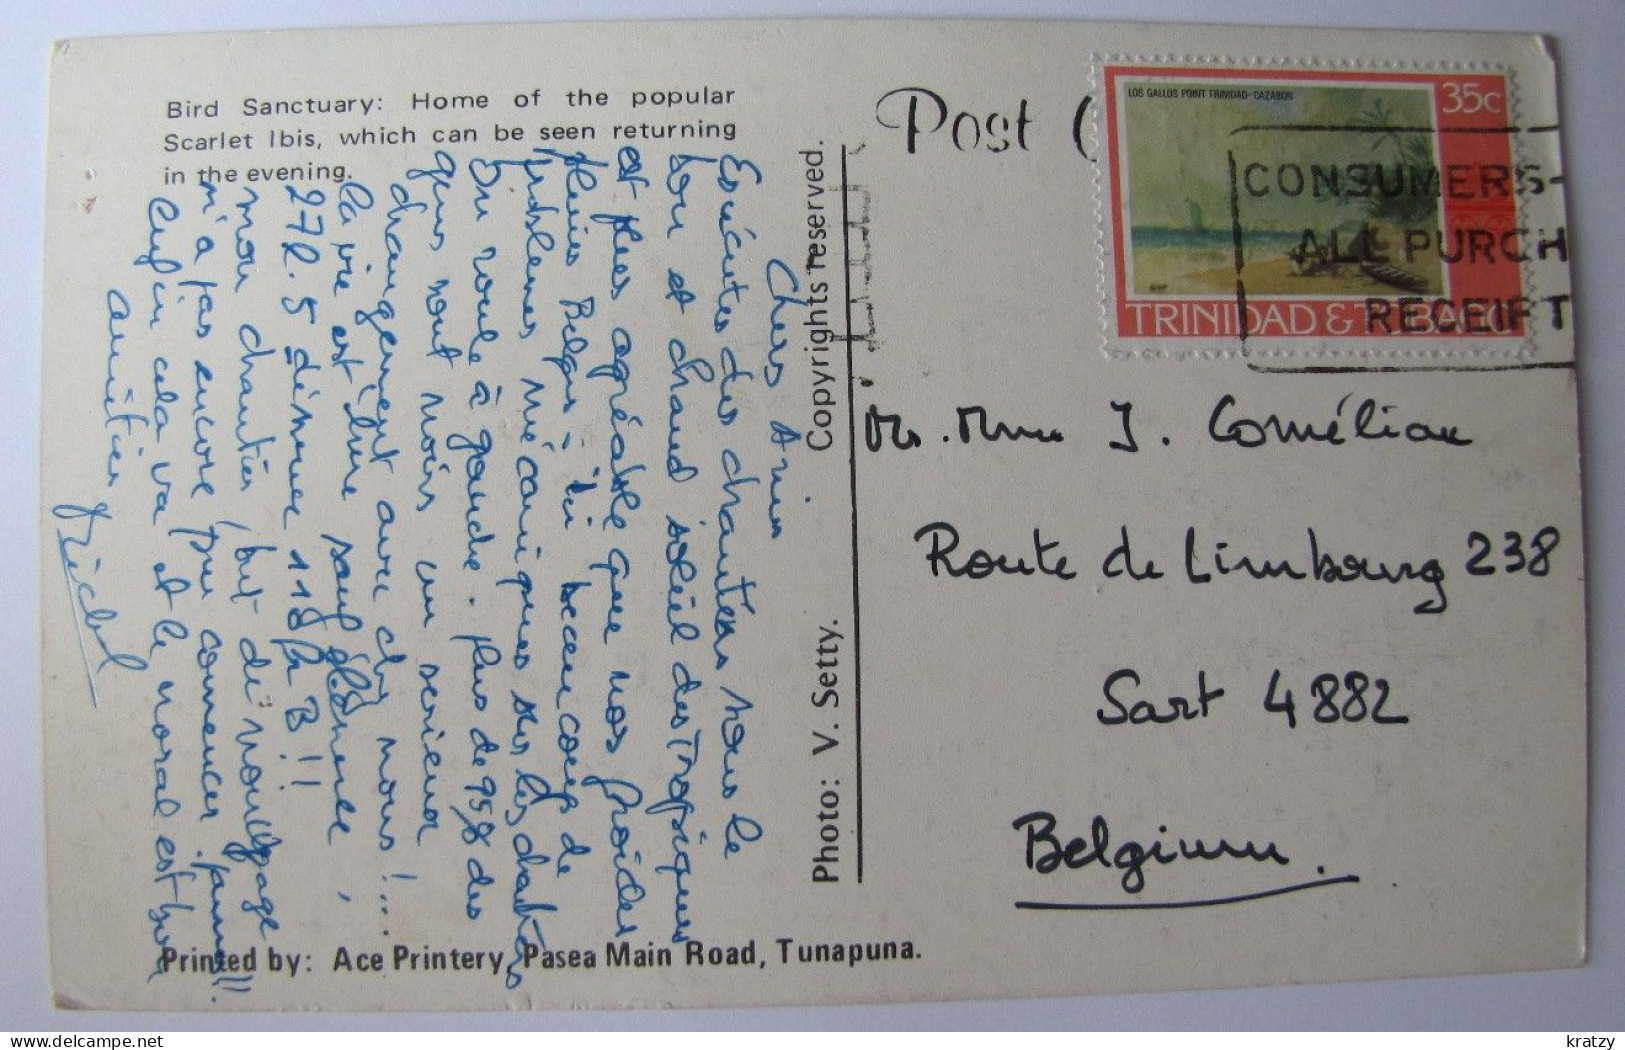 Bird Sanctuary: Home of the popular
Scarlet Ibis, which can be seen returning
in the evening.
Post C
LOS GALLOS POINT TRINIDAD-CAZABON
35c
TRINIDAD & TOBAGO
CONSUMERS-
ALL PURCH
RECEIPT
Copyrights reserved.
Photo: V. Setty.
Chers Amis
des chantiers nous le
et chaud soleil des Tropiques
est plus agréable que nos froides
pluies Belges - Ici beaucoup de
problèmes mécaniques sur les chantiers
On roule à gauche. plus de 95% des
gens sont noirs un serieux
changement avec chez nous!...
la vie est chère sauf l'essence,
272. 5 démarre 118 fr B!!
mon chantier, but de mon voyage
n'a pas encore pu commencer.
Enfin cela va et le moral est bon
amitiés
Michel
Mr. Mme J. Cornéliau
Route de Limbourg 238
Sart 4882
Belgium.
Printed by: Ace Printery, Pasea Main Road, Tunapuna.
kratzy